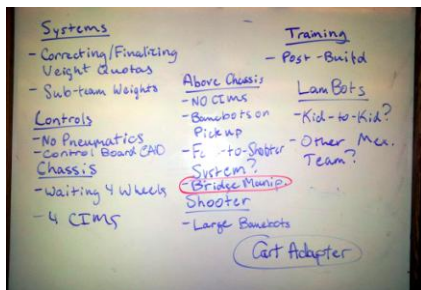 Systems
- Correcting/Finalizing
Weight Quotas
- Sub-team Weights
Controls
- No Pneumatics
- Control Board CAD
Chassis
- Waiting 4 Wheels
- 4 CIMS
Above Chassis
- NO CIMS
- Banebots on
Pickup
- -to-Shooter
System?
- Bridge Manip.
Shooter
- Large Banebots
Training
- Post-Build
Lam Bots
- Kid-to-Kid?
- Other Mex.
Team?
Cart Adapter